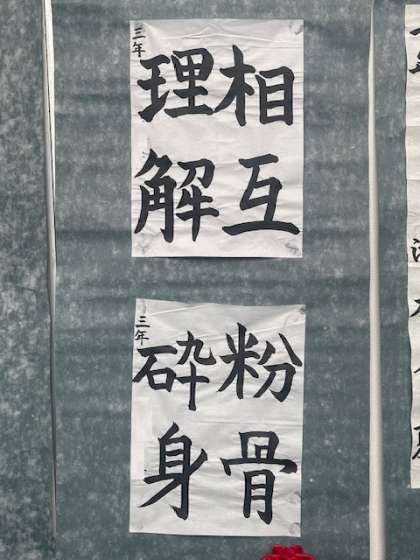 相互
理解
三年
粉骨
砕身
三年